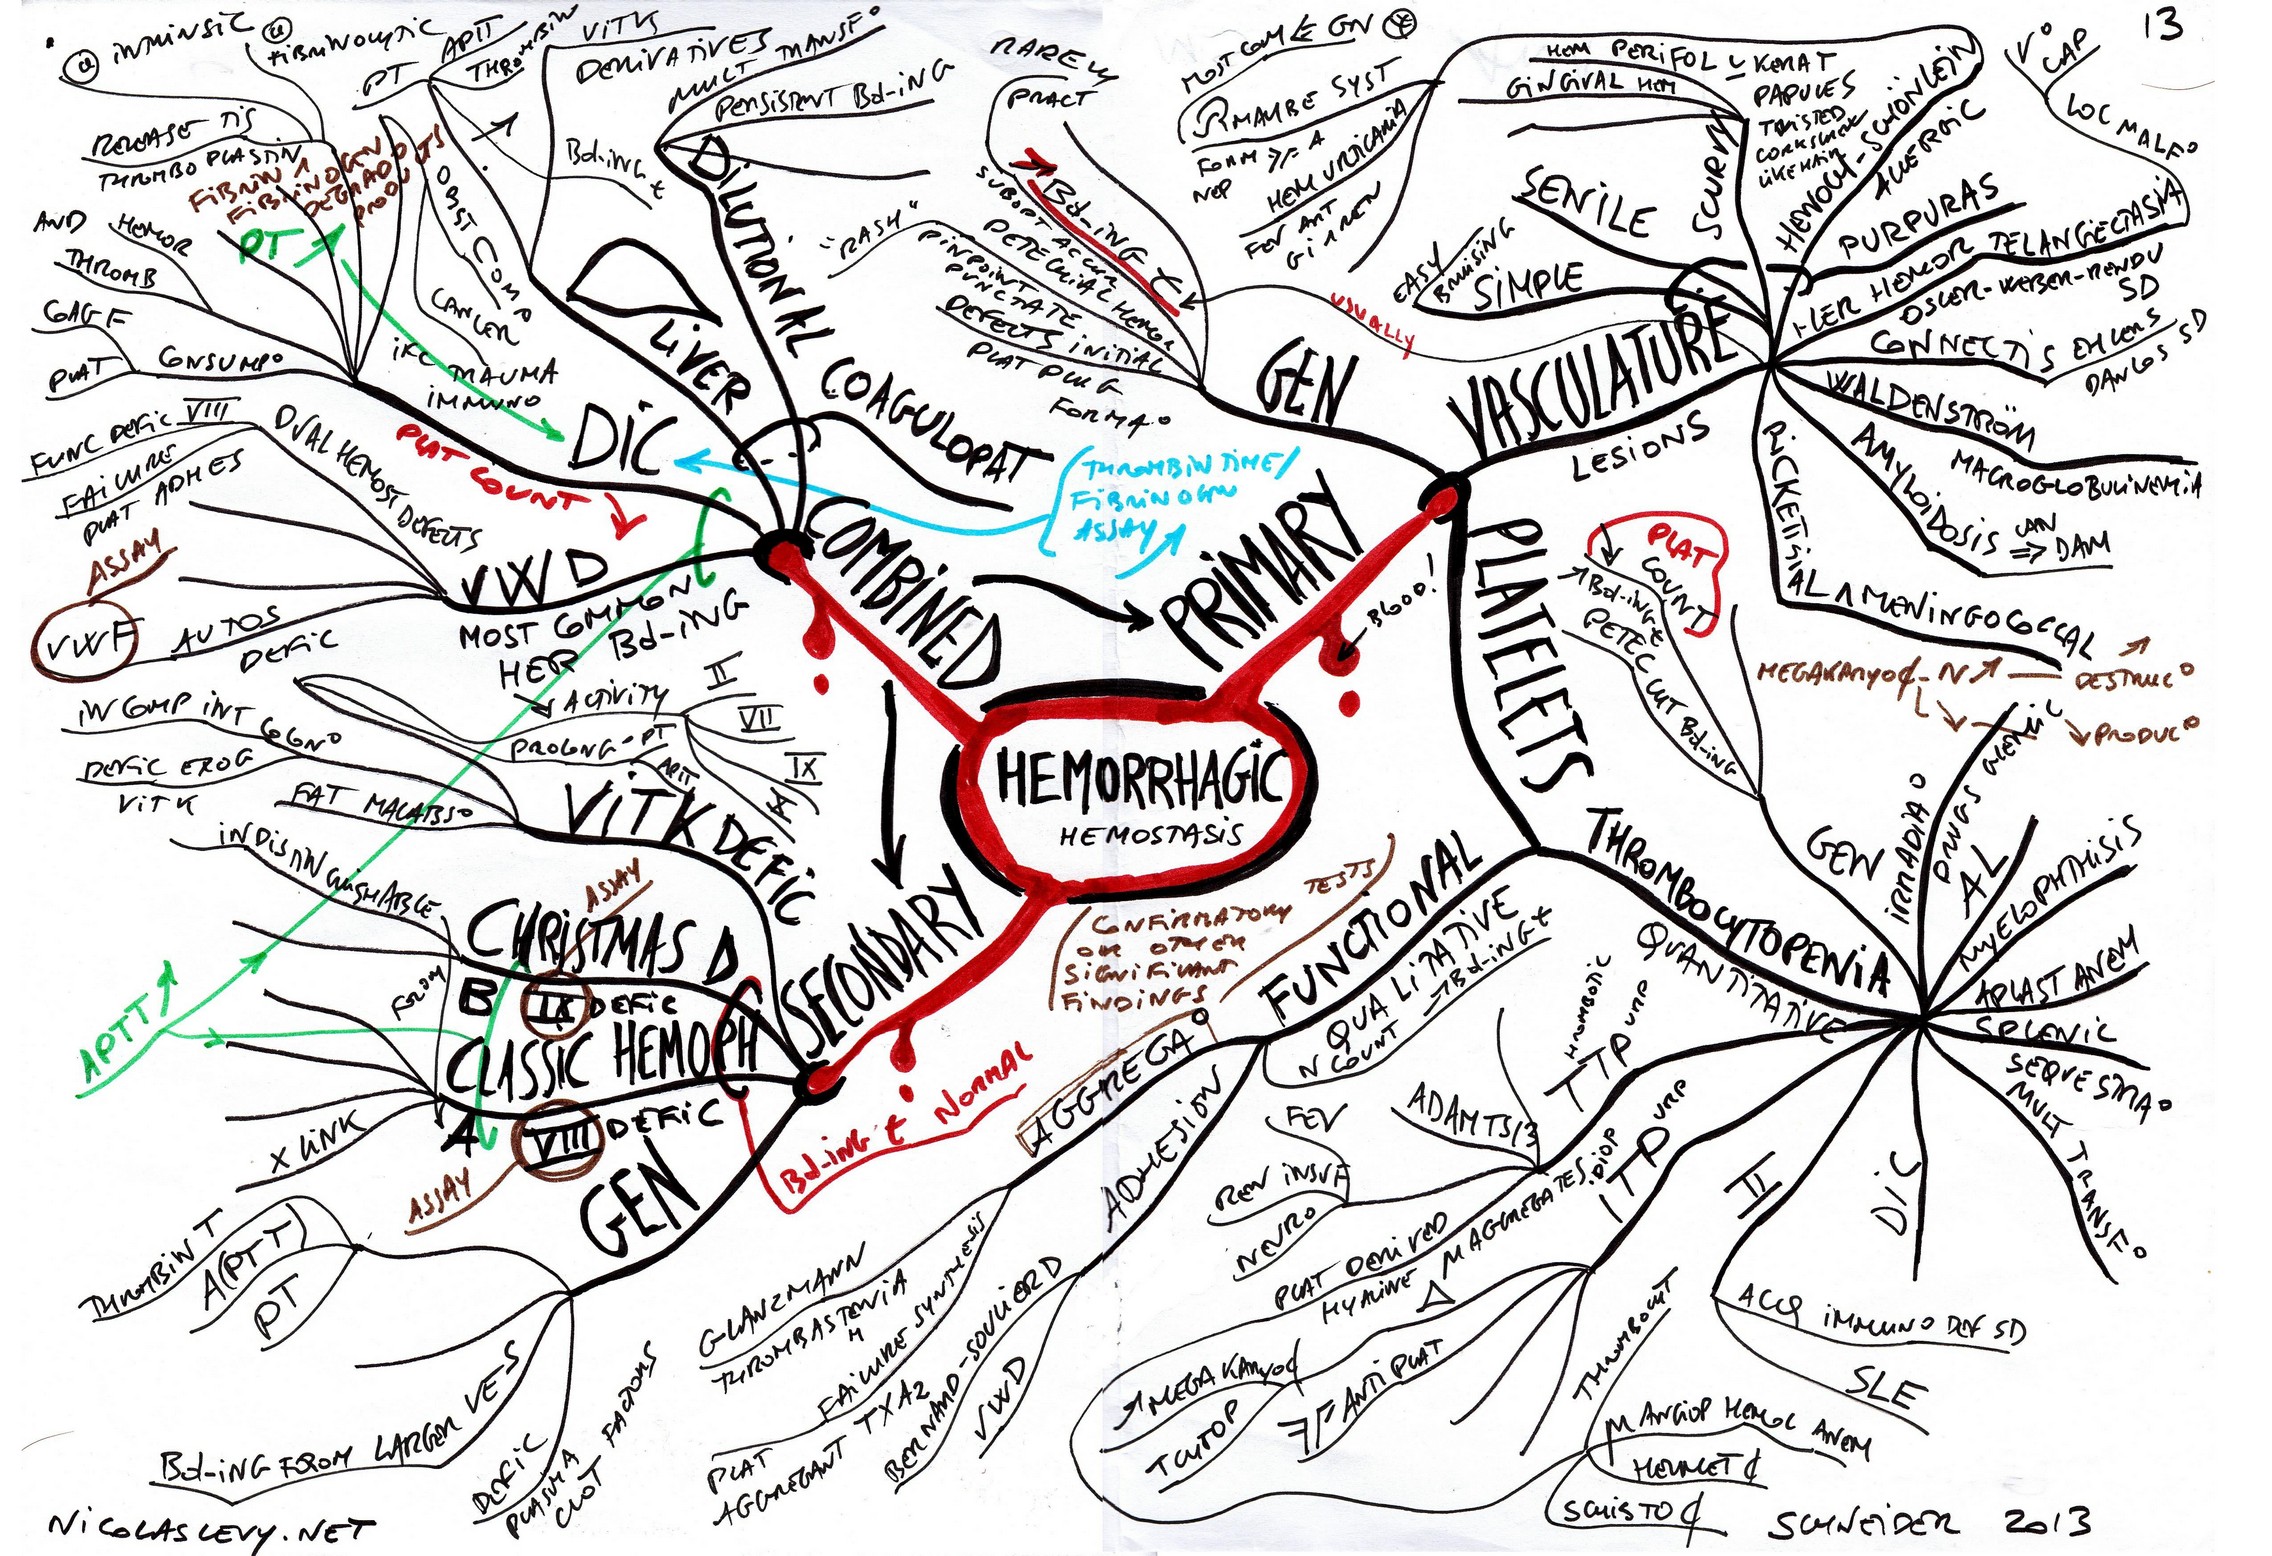 13
INTRINSIC
FIBRINOLYTIC
RELEASE TIS
THROMBOPLASTIN
FIBRIN
FIBRINOGEN
DEGRADO
PRODUCTS
PT
AND
HEMOR
THROMB
COAG F
PLAT
CONSUMPO
OBST COMPO
CANCER
TRAUMA
IMMUNO
DIC
PLAT COUNT
PT
APTT
THROMBIN
VIT K
DERIVATIVES
Bd-ING t
LIVER
MULT TRANSFO
PERSISTENT Bd-ING
DILUTIONAL
COAGULOPAT
THROMBIN TIME/
FIBRINOGEN
ASSAY
COMBINED
FUNC DEFIC VIII
FAILURE
PLAT ADHES
DUAL HEMOST DEFECTS
ASSAY
VWF
AUTOS
DEFIC
VWD
MOST COMMON
HER Bd-ING
RARELY
PRACT
Bd-ING t
SUBORT ACCUM
PETECHIAL HEMOR
"RASH"
PINPOINT
PUNCTATE
DEFECTS INITIAL
PLAT PLUG
FORMAO
USUALLY
GEN
PRIMARY
BLOOD!
VASCULATURE
LESIONS
MOST COM
GN
MAYBE SYST
FORM
A
NEP
HEM URTICARIA
FEV ANT
HEM PERIFOL
KERAT
PAPULES
TWISTED
CORKSCREW
LIKE HAIR
GINGIVAL HEM
SCURVY
SENILE
EASY
BRUISING
SIMPLE
HENOCH-SCHÖNLEIN
ALLERGIC
PURPURAS
VO
CAP
LOC MALFO
HER HEMOR TELANGIECTASIA
OSLER-WEBER-RENDU
SD
CONNECTIS
EHLERS
DANLOS SD
WALDENSTRÖM
MACROGLOBULINEMIA
AMYLOIDOSIS
CAN
DAM
RICKETTSIAL
MENINGOCOCCAL
PLATELETS
PLAT
COUNT
Bd-ING t
PETEC CUT Bd-ING
MEGAKARYO¢ - N
DESTRUCO
PRODUCO
HEMORRHAGIC
HEMOSTASIS
ACTIVITY
II
VII
IX
X
PROLONG - PT
APTT
INCOMP INT
COLONO
DEFIC EXOG
VIT K
FAT MALABSO
VIT K DEFIC
INDISTINGUISHABLE
FROM
CHRISTMAS D
ASSAY
B IX DEFIC
CLASSIC HEMOPH
A VIII DEFIC
ASSAY
X LINK
APTT
Bd-ING t NORMAL
SECONDARY
GEN
THROMBIN T
A(PTT)
PT
Bd-ING FROM LARGER VE-S
DEFIC
PLASMA
CLOT FACTORS
CONFIRMATORY TESTS
OR OTHER
SIGNIFICANT
FINDINGS
FUNCTIONAL
QUALITATIVE
N COUNT
Bd-ING t
AGGREGAO
ADHESION
GLANZMANN
THROMBASTENIA
FAILURE SYNTHESIS
TXA2
PLAT
AGGREGANT
BERNARD-SOULIERD
VWD
THROMBOCYTOPENIA
QUANTITATIVE
GEN
IRRADIAO
DRUGS
AL
MYELOPHTHISIS
APLAST ANEM
SPLENIC
SEQUESTRAO
MULT TRANSFO
DIC
II
ACQ IMMUNO DEF SD
SLE
THROMBOTIC
TTP URP
ADAMTS13
FEV
REN INSUF
NEURO
PLAT DERIVED
HYALINE
M AGGREGATES
IDIOP
ITP URP
MEGAKARYO¢
TCYTOP
ANTIPLAT
THROMBOCYT
M ANGIOP HEMOL ANEM
HELMET ¢
SCHISTO ¢
NICOLASLEVY.NET
SCHNEIDER 2013